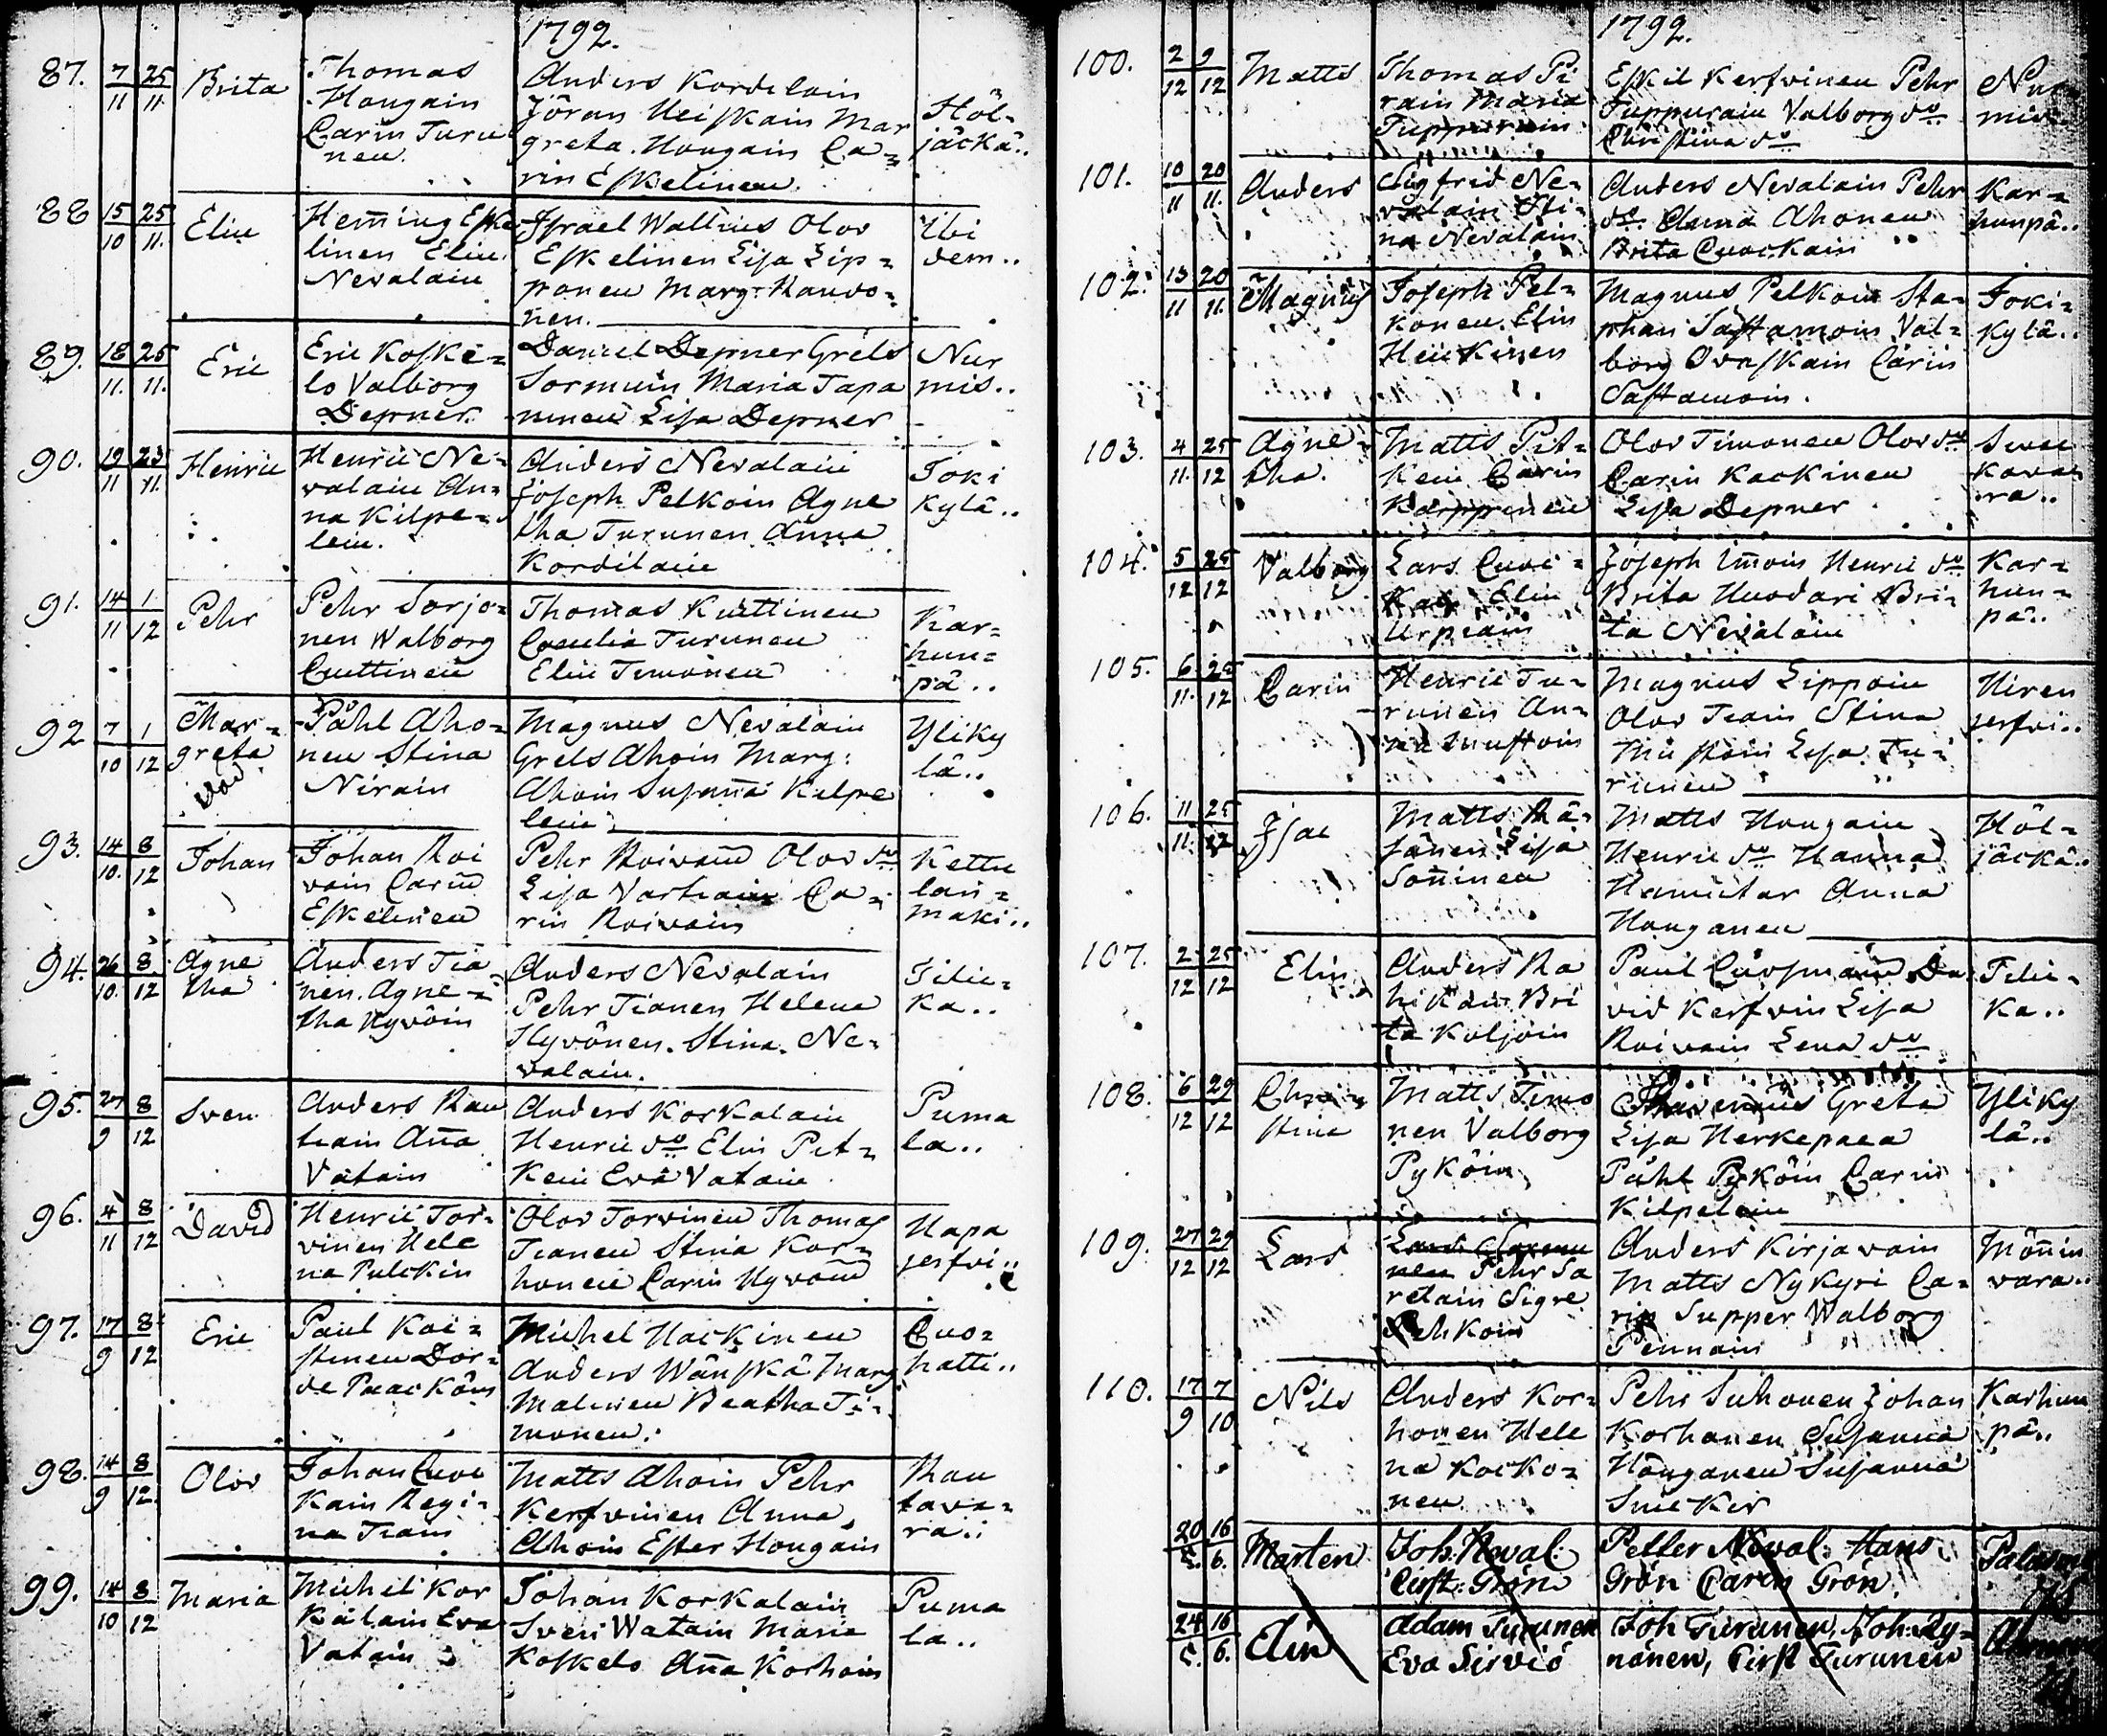 1792.
87. 7/11 25/11. Brita Thomas Hougain Carin Turu nen. Anders Kordelain Jöran Heiskain Mar greta Hougain Ca= rin Eskelinen. Höl= jäckä..
88 15/10 25/11. Elin Heming Eske linen Elin Nevalain Israel Wallius Olov Eskelinen Lisa Lip= ponen Marg. Rauvo= nen. Ibi dem..
89. 18/11. 25/11. Eric Eric Koske= lo Valborg Depner. Daniel Depner Grels Sormuin Maria Tapa ninen Lisa Depner Nur mis..
90. 19/11 23/11. Henric Henric Ne= valain An= na Kilpe= lein. Anders Nevalain Joseph Pelkoin Agne tha Turunen Anna Kordilain Joki kylä..
91. 14/11 1/12 Pehr Pehr Sorjo= nen Walborg Cuttinen Thomas Kuttinen Caecilia Turunen Elin Timonen Kar= hun= pä..
92 7/10 1/12 Mar= greta Påhl Aho= nen Stina Nirain Magnus Nevalain Grels Ahoin Marg: Ahoin Susanna Kilpe lein Yliky lä..
93. 14/10. 8/12 Johan Johan Roi vain Carin Eskelinen Pehr Roivain Olov do Lisa Vartiain Ca= rin Roivain Kettu lan= mäki..
94. 26/10. 8/12 Agne tha Anders Tia= nen. Agne= tha Hyvöin Anders Nevalain Pehr Tianen Helena Hyvönen. Stina Ne= valain. Tilic= ka..
95. 27/9 8/12 Sven Anders Rau tiain Anna Vatain Anders Korkalain Henric do Elin Pit= kein Eva Vatain Puma la..
96. 4/11 8/12 David Henric Tor= vinen Hele na Pulckin Olov Torvinen Thomas Tianen Stina Kor= honen Carin Hyvöin Hapa jerfvi..
97. 17/9 8/12 Eric Paul Koi= stinen Dor= de Paacköin Michel Hackinen Anders Wänskä Marg Malinen Beatha Ti= monen. Cuo= hatti..
98. 14/9 8/12. Olov Johan Cuvi kain Regi= na Tiain Matts Ahoin Pehr Kerfvinen Anna Ahoin Ester Hougain Rau tava= ra..
99. 14/10 8/12 Maria Michel Kor kalain Eva Vatain Johan Korkalain Sven Watain Maria Koskelo Anna Korhoin Puma la..
1792.
100. 2/12 9/12 Matts Thomas Pi rain Maria Tuppurain Eskil Kerfvinen Pehr Tuppurain Valborg do Christina do Nur mis..
101. 10/11 20/11. Anders Sigfrid Ne= valain Sti= na Nevalain Anders Nevalain Pehr do Anna Ahonen Brita Cuockain Kar= hunpä..
102. 13/11 20/11. Magnus Joseph Pel= konen Elin Heickinen Magnus Pelkoin Sta= phan Sastamoin Val= borg Ovaskain Carin Sastamoin. Joki= kylä..
103. 4/11. 25/12 Agne= tha. Matts Pit= kein Carin Karppinen Olov Timonen Olov do Carin Kackinen Lisa Depner
104. 5/12 25/12 Valborg Lars Cuvi= kain Elin Urpiain Joseph Imoin Henric do Brita Huodari Bri= ta Nevalain Kar= hun= pä..
105. 6/11. 25/12 Carin Henric Tu= runen An= na Mustoin Magnus Lippoin Olov Tiain Stina Mustoin Lisa Tu= runen Hiren jerfvi..
106. 11/11. 25/12 Isac Matts Rä= sänen Lisa Sonninen Matts Hougain Henric do Hanna Hamictar Anna Houganen Höl= jäckä..
107. 2/12 25/12 Elin Anders Ra hikain Bri ta Koljoin Paul Cuosmain Da vid Kerfvin Lisa Roivain Lena do Tilic= ka..
108. 6/12 29/12 Chri= stina Matts Timo nen Valborg Pyköin Greta Lisa Herkepaea Påhl Pyköin Carin Kilpelein Yliky lä..
109. 27/12 29/12 Lars Pehr Sa relain Sigre Pehkoin Anders Kirjavain Matts Nykyri Ca= rin Supper Walborg Pennain Mönnin vara..
110. 17/9 7/10 Nils Anders Kor= honen Hele na Kocko= nen Pehr Suhonen Johan Korhonen Susanna Houganen Susanna Smicker Karhun pä..
20/5. 16/6. Mårten Joh. Neval: Cirst. Grön Petter Neval. Hans Grön Caren Grön.
24/5. 16/6. Elin Adam Turunen Eva Sirviö Joh Turunen, Joh. Ry= nänen, Cirst Turunen